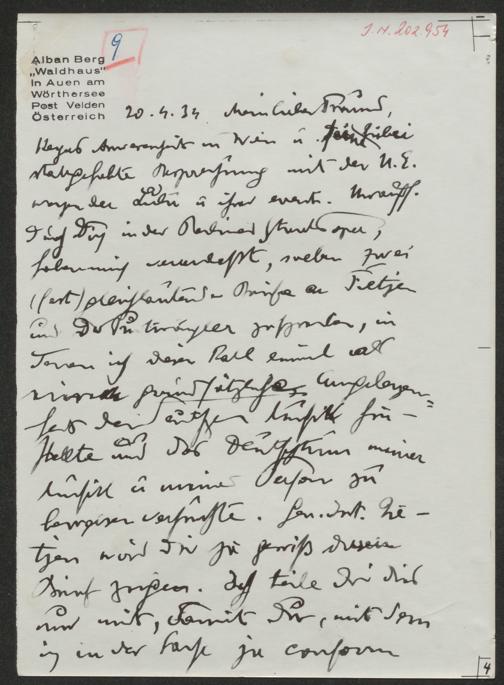 9
I.N. 202.954
Alban Berg
„Waldhaus"
in Auen am
Wörthersee
Post Velden
Österreich
20.4.34 Mein lieber Freund,
Anwesenheit in Wien u. hiebei
stattgehabte Besprechung mit der U.E.
wegen der Lulu u ihrer event. Urauff.
durch Dich in der Berliner Staatsoper,
haben mich veranlaßt, soeben zwei
(fast) gleichlautende Briefe an Tietjen
und Dr Furtwängler zu senden, in
denen ich diesen Fall einmal als
eine grundsätzliche Angelegen=
heit der deutschen Musik hin-
stellte und das Deutschtum meiner
Musik u meiner Person zu
beweisen versuchte. Gen.Int. Tie-
tjen wird Dir ja gewiß diesen
Brief zeigen. Ich teile Dir dies
nur mit, damit Du, mit dem
ich in der Sache ja conform
4